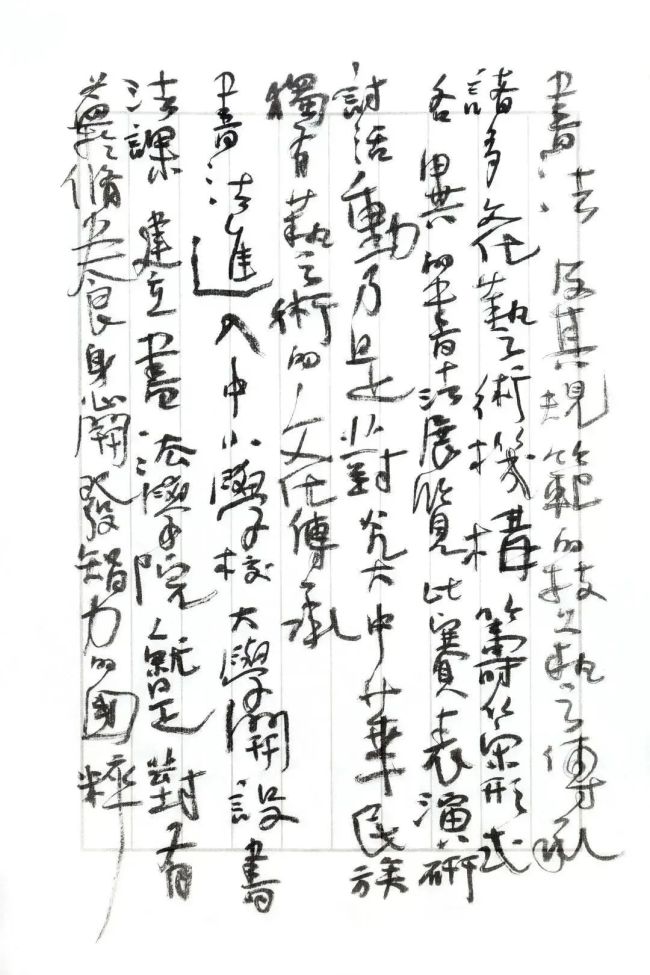 書法及其規範的技藝之傳承
諸多文化藝術機構籌策形式
各異的書法展覽比賽表演研
討活動乃是對光大中華民族
獨有藝術的文化傳承
書法進入中小學校大學開設書
法課建立書法學院就是對有
藝修養良身心開發智力的國粹